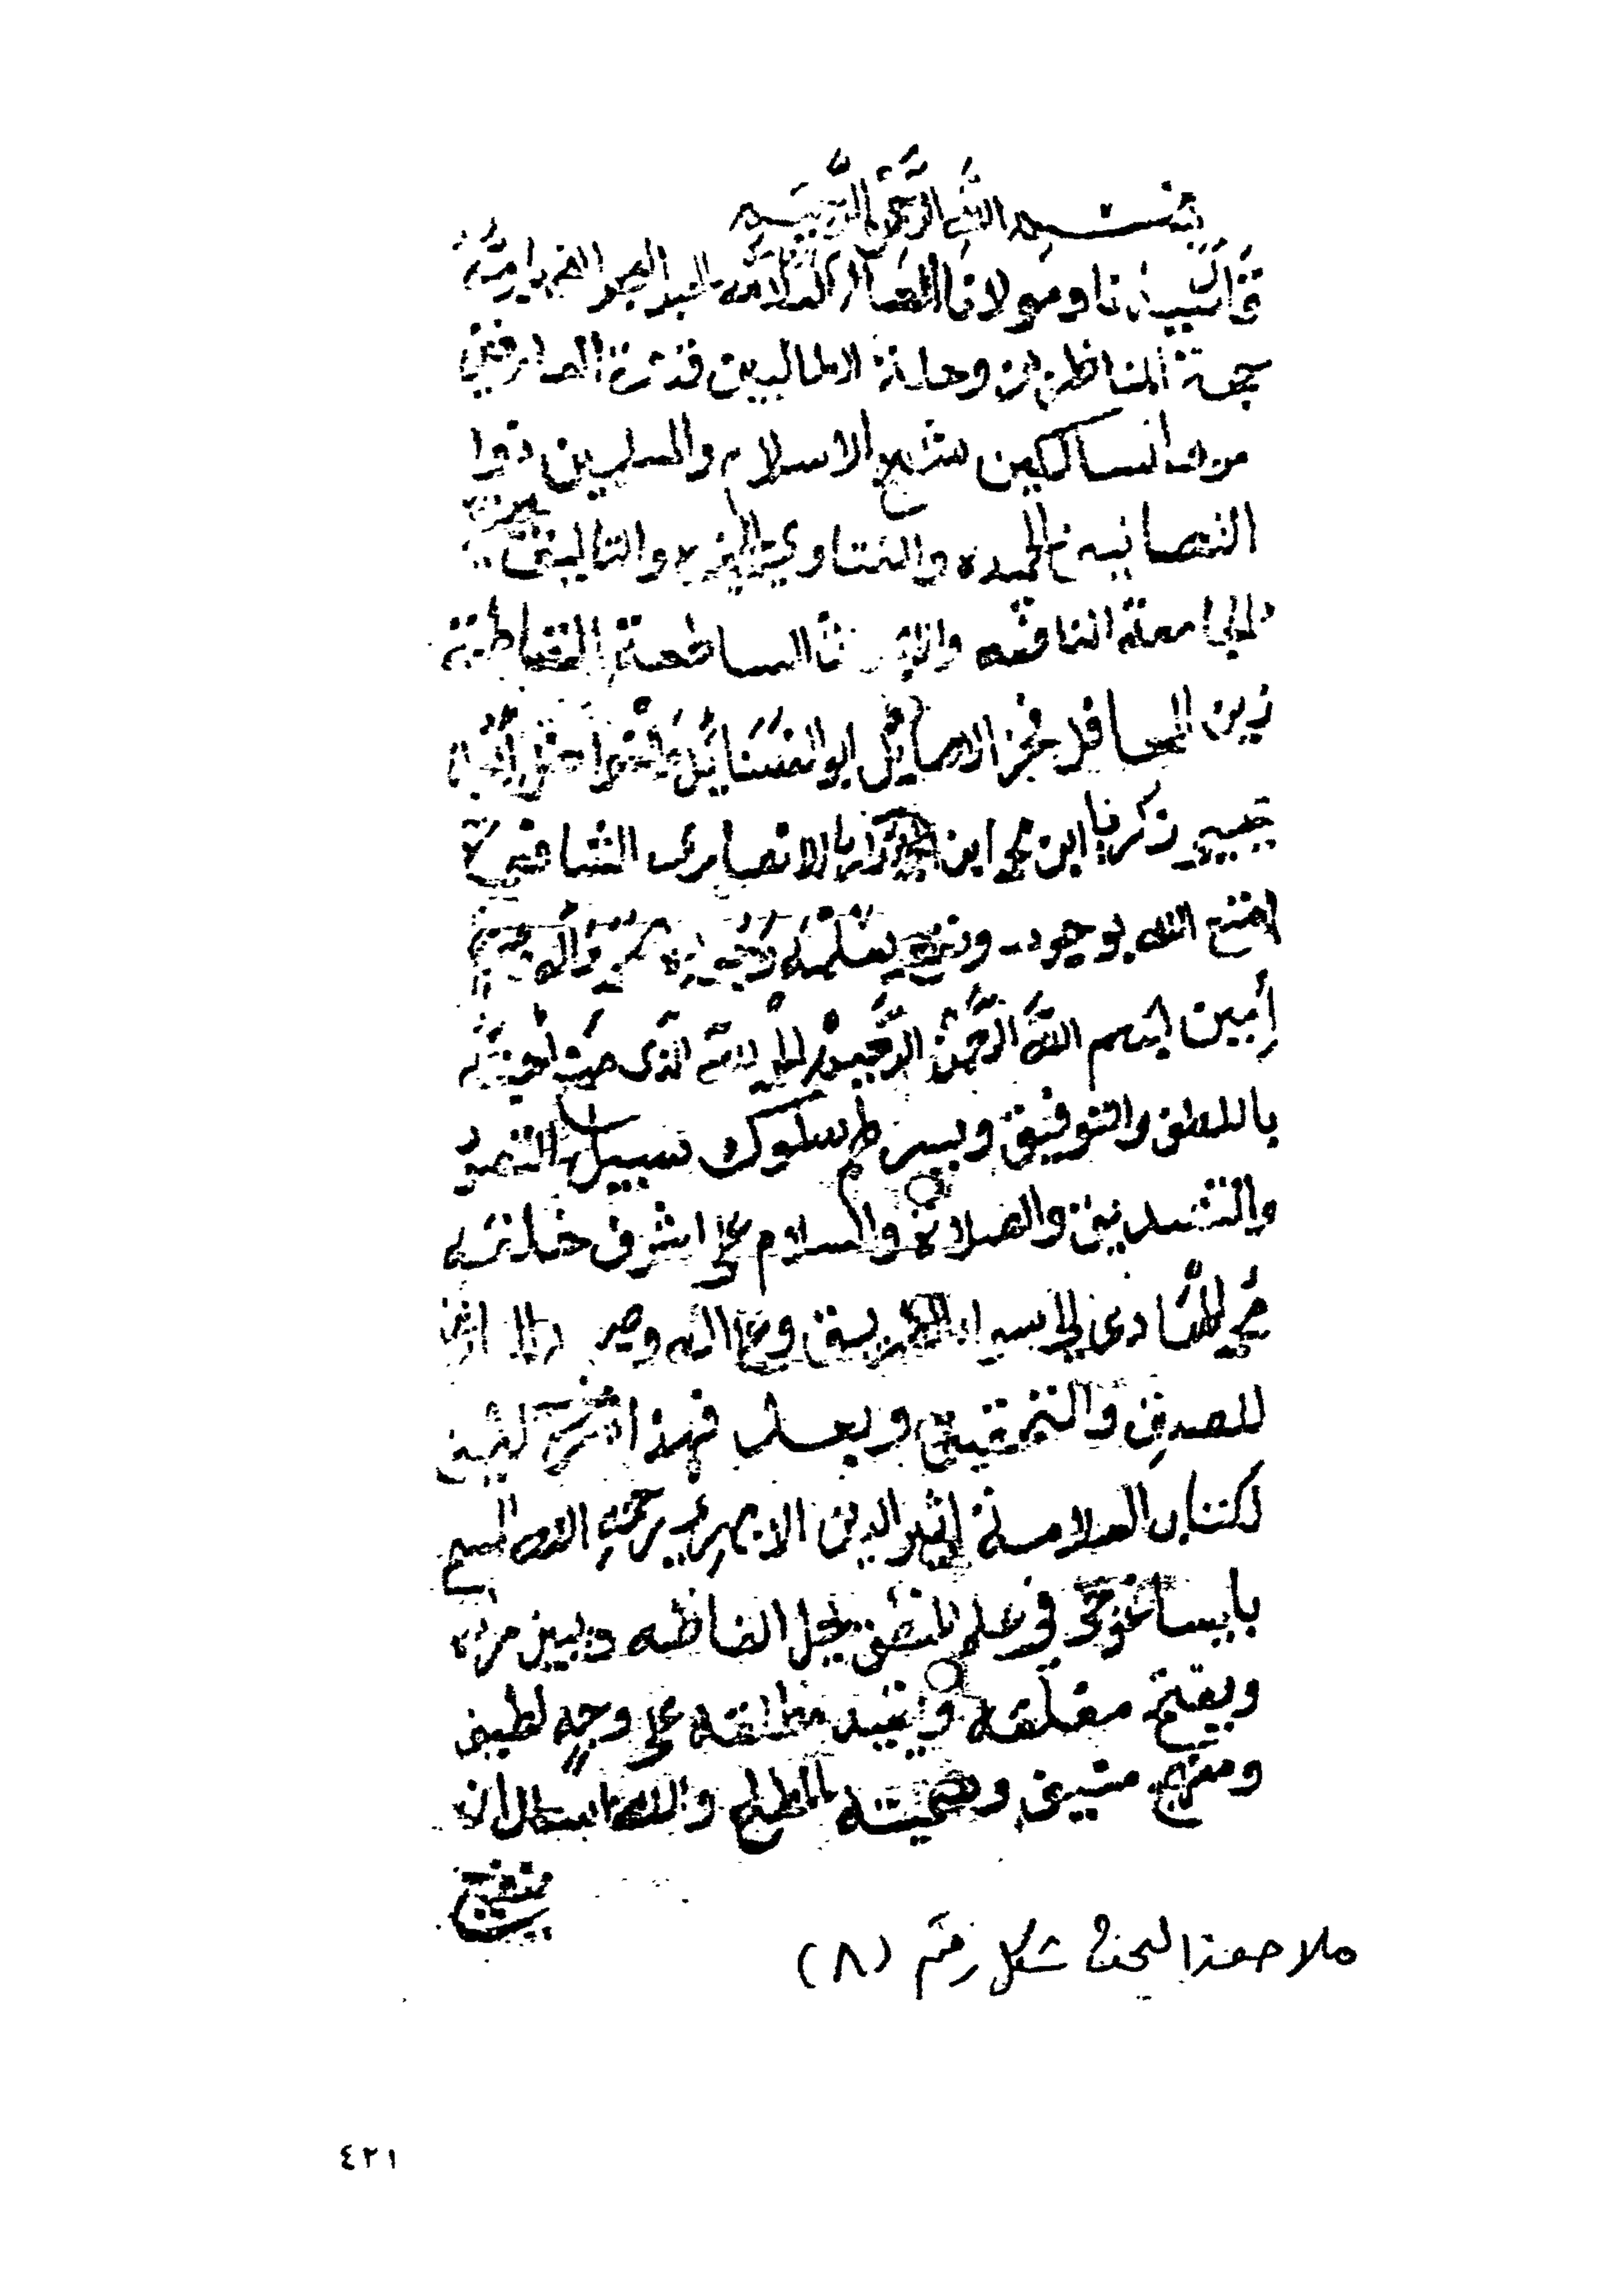 بسم الله الرحمن الرحيم
قال سيدنا ومولانا العالم العلامة الحبر البحر الفهامة
حجة المناظرين وحلة الطالبين قدوة العارفين
مربى السالكين شيخ الاسلام والمسلمين ذوا
التصانيف الحميده والفتاوي والتاليف
الجامعة النافعه الساطعة القاطعة
زين المحافل فخر الاماثل ابو الفضائل
يحيى زكريا ابن محمد ابن زكريا الانصارى الشافعى
امتع الله بوجوده ونفع بعلمه وجوده بمحمد وآله
أمين بسم الله الرحمن الرحيم الحمد لله الذى منح احبته
باللطف والتوفيق ويسر لهم سلوك سبيل التصور
والتصديق والصلاة والسلام على اشرف خلقه
محمد الهادى الى سواء الطريق وعلى اله وصحبه
للصدق والتحقيق وبعد فهذا شرح لطيف
لكتاب العلامة اثير الدين الابهري رحمه الله المسمى
بايساغوجى في علم المنطق يحل الفاظه ويبين مراده
ويفتح مغلقه ويقيد مطلقه على وجه لطيف
ومنهج منيف وسميته المطلع والله اسال ان
ينفع
ملاحق البحث شكل رقم (٨)
٤٢١